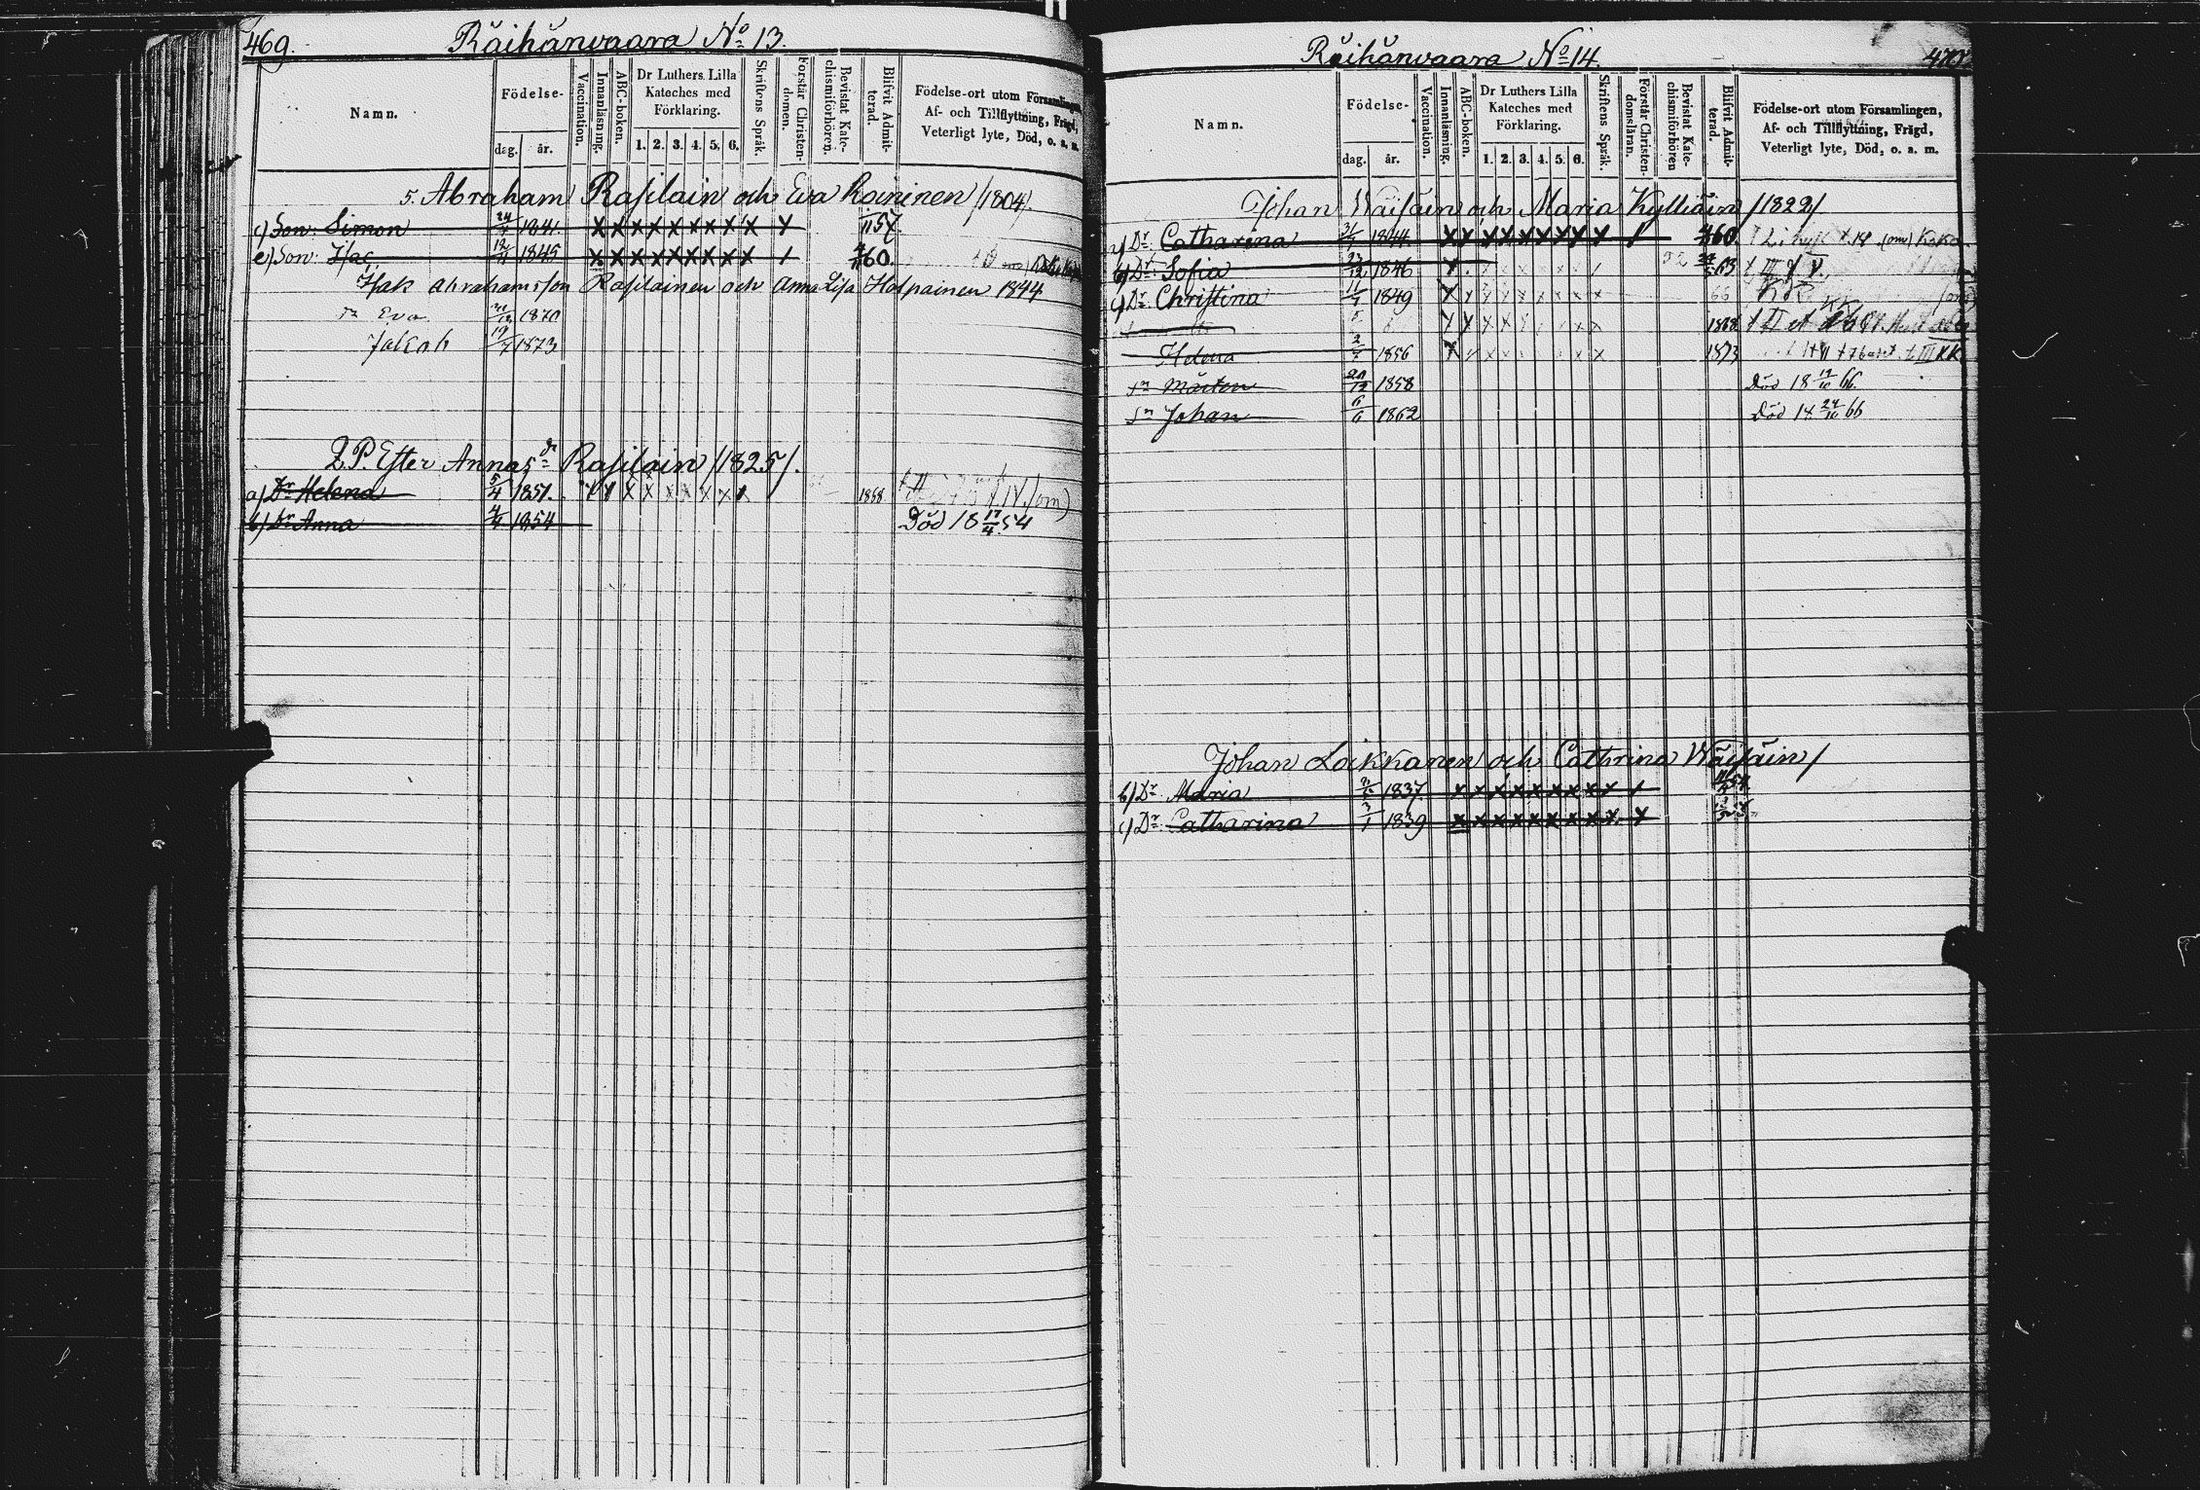 469.
Räihänvaara No 13.
Namn.
Födelse-
dag. år.
Vaccination.
Innanläsning.
ABC-boken.
Dr Luthers Lilla
Kateches med
Förklaring.
1. 2. 3. 4. 5. 6.
Skriftens Språk.
Förstår Christen-
domen.
Bevistat Kate-
chismiförhören.
Blifvit Admit-
terad.
Födelse-ort utom Församlingen,
Af- och Tillflyttning, Frägd,
Veterligt lyte, Död, o. a. m.
5. Abraham Rasilain och Eva Roininen /1804/.
c) Son: Simon 1841 X X X X X X X X X X 57.
e) Son: Isac 1845 X X X X X X X X X 60.
Isak Abrahamsson Rasilainen och Anna Lisa Holpainen 1844
Eva 1870
Jakob 19/7 1873
Z.P. Efter Anna Rasilain /1825/.
a) Dr Helena 5/4 1851. X X X X X X X X X 1868
b) Dr Anna 4/4 1854 Död 18 17/4 54
Räihänvaara No 14.
470
Namn.
Födelse-
dag. år.
Vaccination.
Innanläsning.
ABC-boken.
Dr Luthers Lilla
Kateches med
Förklaring.
1. 2. 3. 4. 5. 6.
Skriftens Språk.
Förstår Christen-
domsläran.
Bevistat Kate-
chismiförhören
Blifvit Admit-
terad.
Födelse-ort utom Församlingen,
Af- och Tillflyttning, Frägd,
Veterligt lyte, Död, o. a. m.
Johan Wäisäin och Maria Kylliäin /1822/
a) Dr. Catharina 1844 X X X X X X X X X 60.
b) Dr. Sofia 1846 63
c) Dr. Christina 11/7 1849 66
1868
Helena 2/7 1856 1873
Sn Mårten 1858 Död 18 66.
Sn Johan 6/6 1862 Död 18 24/10 66
Johan Loikkanen och Cathrina Wäisäin/
b) Dr. Maria 1837. X X X X X X X X X 54.
c) Dr. Catharina 3/1 1839 X X X X X X X X X X